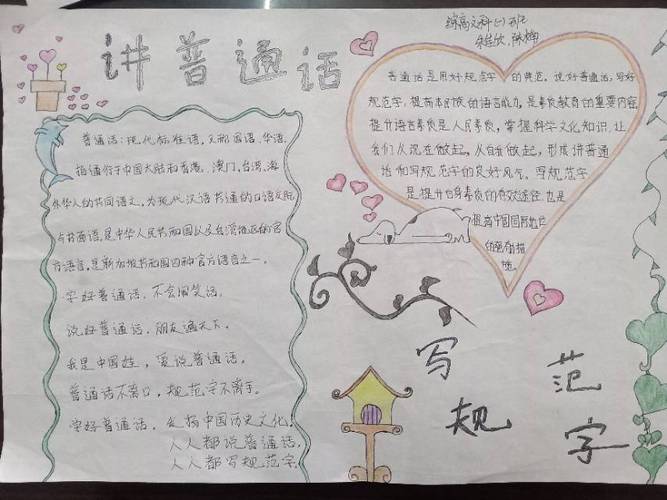 讲普通话
综高文科(一)班
普通话:现代标准汉语,又称国语、华语,
指通行于中国大陆和香港、澳门、台湾、海
外华人的共同语文,为现代汉语共通的口语交际
与书面语,是中华人民共和国以及台湾地区的官
方语言,是新加坡共和国四种官方语言之一。
学好普通话,不会闹笑话。
说好普通话,朋友遍天下。
我是中国娃,爱说普通话。
普通话不离口,规范字不离手。
学好普通话,发扬中国历史文化
人人都说普通话,
人人都写规范字。
普通话是用好规范字的典范。说好普通话,写好
规范字,提高本民族的语言能力,是素质教育的重要内容
提升语言素质是人民素质,掌握科学文化知识,让
我们从现在做起,从自我做起,形成讲普通
话和写规范字的良好风气,写规范字
是提升自身素质的有效途径也是
提高中国国际地位
的坚韧措
施。
写规范字